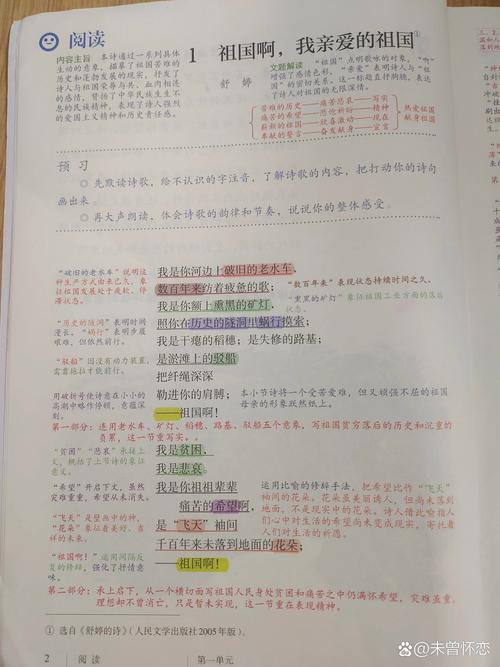 阅读
1 祖国啊，我亲爱的祖国①
舒婷
内容主旨 本诗通过一系列具体
生动的意象，描摹了祖国苦难的
历史和蓬勃发展的现实，抒发了
诗人与祖国荣辱与共、血肉相连
的感情，赞扬了中华民族生生不
息的民族精神，表现了诗人强烈
的爱国主义精神和历史责任感。
文题解读 “祖国”点明歌咏的对象，“啊”
增强了感情色彩，“亲爱”表明诗人与“祖
国”的密切关系。这一标题直抒胸臆，表达
了诗人对祖国的无限深情。
苦难的历史——痛苦悲哀——写实
痛苦的希望——悲怆祈盼——精神
新的祖国——欣喜激动——现在
奉献的誓言——奋发献身——宣言
热爱祖国
献身祖国
预习
◎先默读诗歌，给不认识的字注音，了解诗歌的内容，把打动你的诗句
画出来。
◎再大声朗读，体会诗歌的韵律和节奏，说说你的整体感受。
我是你河边上破旧的老水车，
数百年来纺着疲惫的歌；
我是你额上熏黑的矿灯，
照你在历史的隧洞里蜗行摸索；
我是干瘪的稻穗；是失修的路基；
是淤滩上的驳船
把纤绳深深
勒进你的肩膊；
——祖国啊！
“破旧的老水车”说明这
种生产方式由来已久，象
征祖国发展处于疲软、停
滞状态。
“历史的隧洞”表明时间
漫长。“蜗行”表明步履
艰难，但依然前行。
“驳船”因没有动力装置，
需靠拖拉才能前行。
用破折号使诗意在小小的
高潮中略作停顿，意蕴深
刻。
“数百年来”表现状态持续时间之久。
“熏黑的矿灯”象征祖国工业方面的落后
状态。
本小节诗将一个受苦受难、但又顽强不屈的祖国
母亲的形象跃然纸上。
第一部分：连用老水车、矿灯、稻穗、路基、驳船五个意象，写祖国贫穷落后的历史和沉重的
负累，这一节重写实。
我是贫困，
我是悲哀。
我是你祖祖辈辈
痛苦的希望啊，
是“飞天”袖间
千百年来未落到地面的花朵；
——祖国啊！
“贫困”“悲哀”承接上
文，概括了上节诗的象征
意义。
“希望”开启下文，虽然
灾难重重，希望从未消失。
“飞天”是壁画中的神，
“花朵”象征着美好、吉
祥的未来。
“祖国啊！”运用间隔反
复的修辞，强化了抒情意
味。
运用比喻的修辞手法，把希望比作“飞天”
袖间的花朵。花朵虽美丽诱人，但尚未落到
地面，不是现实中的花朵。诗人借此喻指人
们心中对生活的希望尚未变成现实，寄托着
人们对生活的祈愿。
第二部分：承上启下，从一个横切面写祖国人民身处贫困和痛苦之中仍满怀希望，灾难虽重，
理想却不曾消亡，只是暂未实现，这一节重在表现精神。
① 选自《舒婷的诗》（人民文学出版社2005年版）。
2 阅读 第一单元
@未曾怀恋